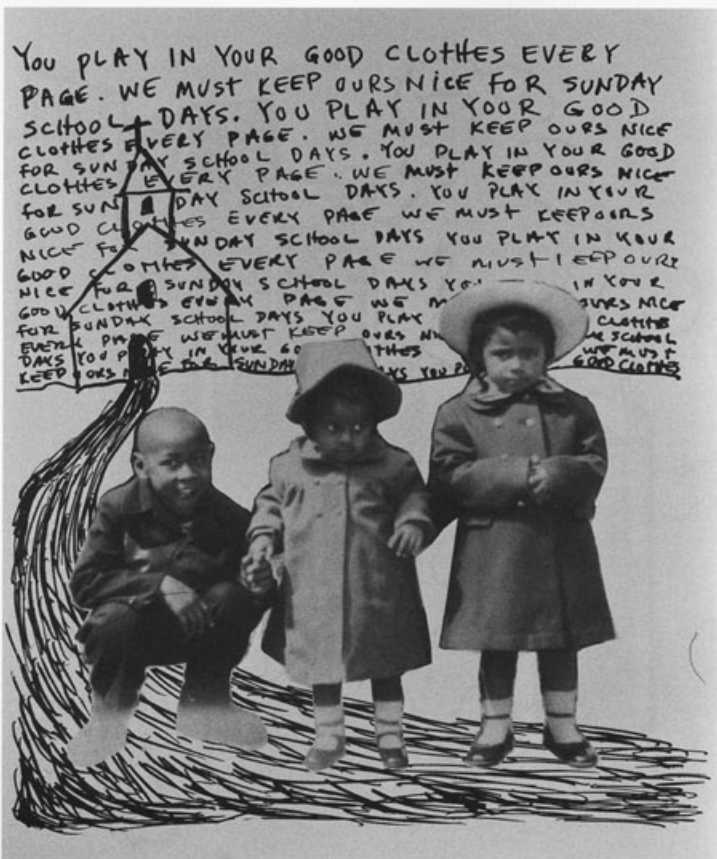 YOU PLAY IN YOUR GOOD CLOTHES EVERY
PAGE. WE MUST KEEP OURS NICE FOR SUNDAY
SCHOOL DAYS. YOU PLAY IN YOUR GOOD
CLOTHES EVERY PAGE. WE MUST KEEP OURS NICE
FOR SUNDAY SCHOOL DAYS. YOU PLAY IN YOUR GOOD
CLOTHES EVERY PAGE. WE MUST KEEP OURS NICE
FOR SUNDAY SCHOOL DAYS. YOU PLAY IN YOUR
GOOD CLOTHES EVERY PAGE WE MUST KEEP OURS
NICE FOR SUNDAY SCHOOL DAYS YOU PLAY IN YOUR
GOOD CLOTHES EVERY PAGE WE MUST KEEP OURS
NICE FOR SUNDAY SCHOOL DAYS YOU IN YOUR
GOOD CLOTHES EVERY PAGE WE OURS NICE
FOR SUNDAY SCHOOL DAYS YOU PLAY CLOTHES
EVERY PAGE WE MUST KEEP OURS SCHOOL
DAYS YOU PLAY IN YOUR GOOD CLOTHES WE MUST
KEEP OURS FOR SUNDAY DAYS YOU GOOD CLOTHES